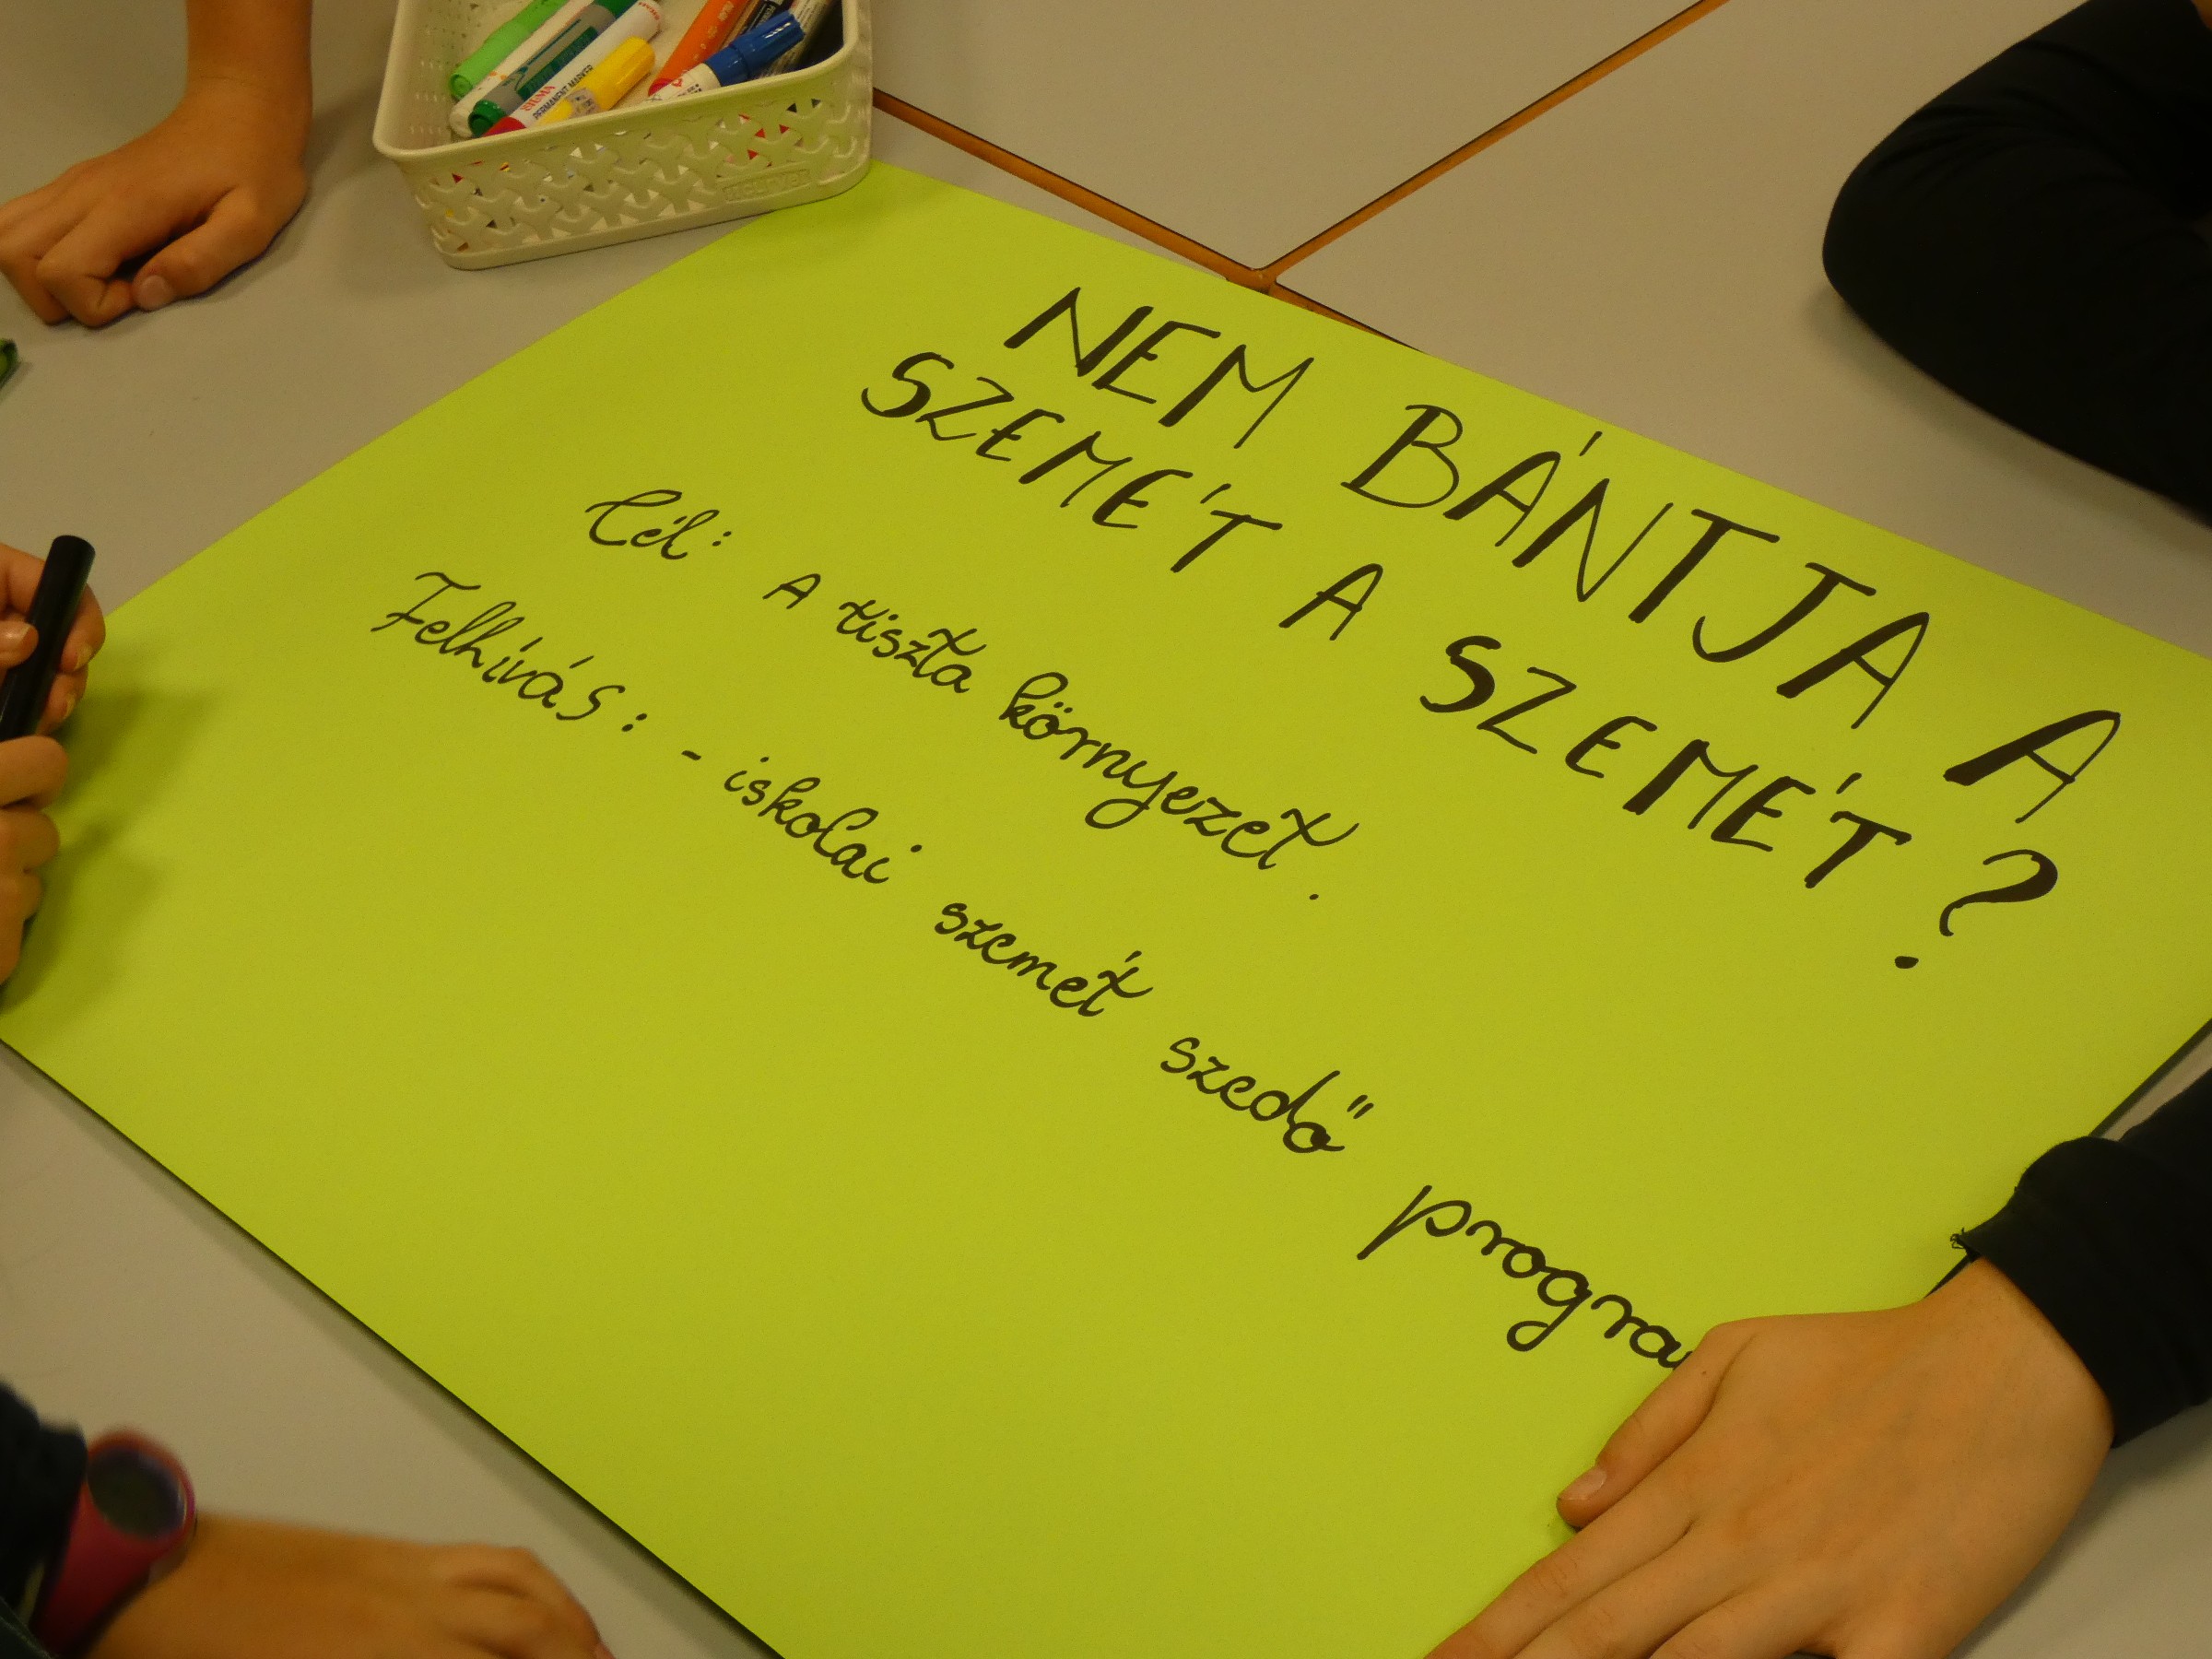 NEM BÁNTJA A
SZEMÉT A SZEMÉT?
Cél: A tiszta környezet.
Felhívás: - iskolai szemét szedő progra
PERMANENT MARKER
CURVER